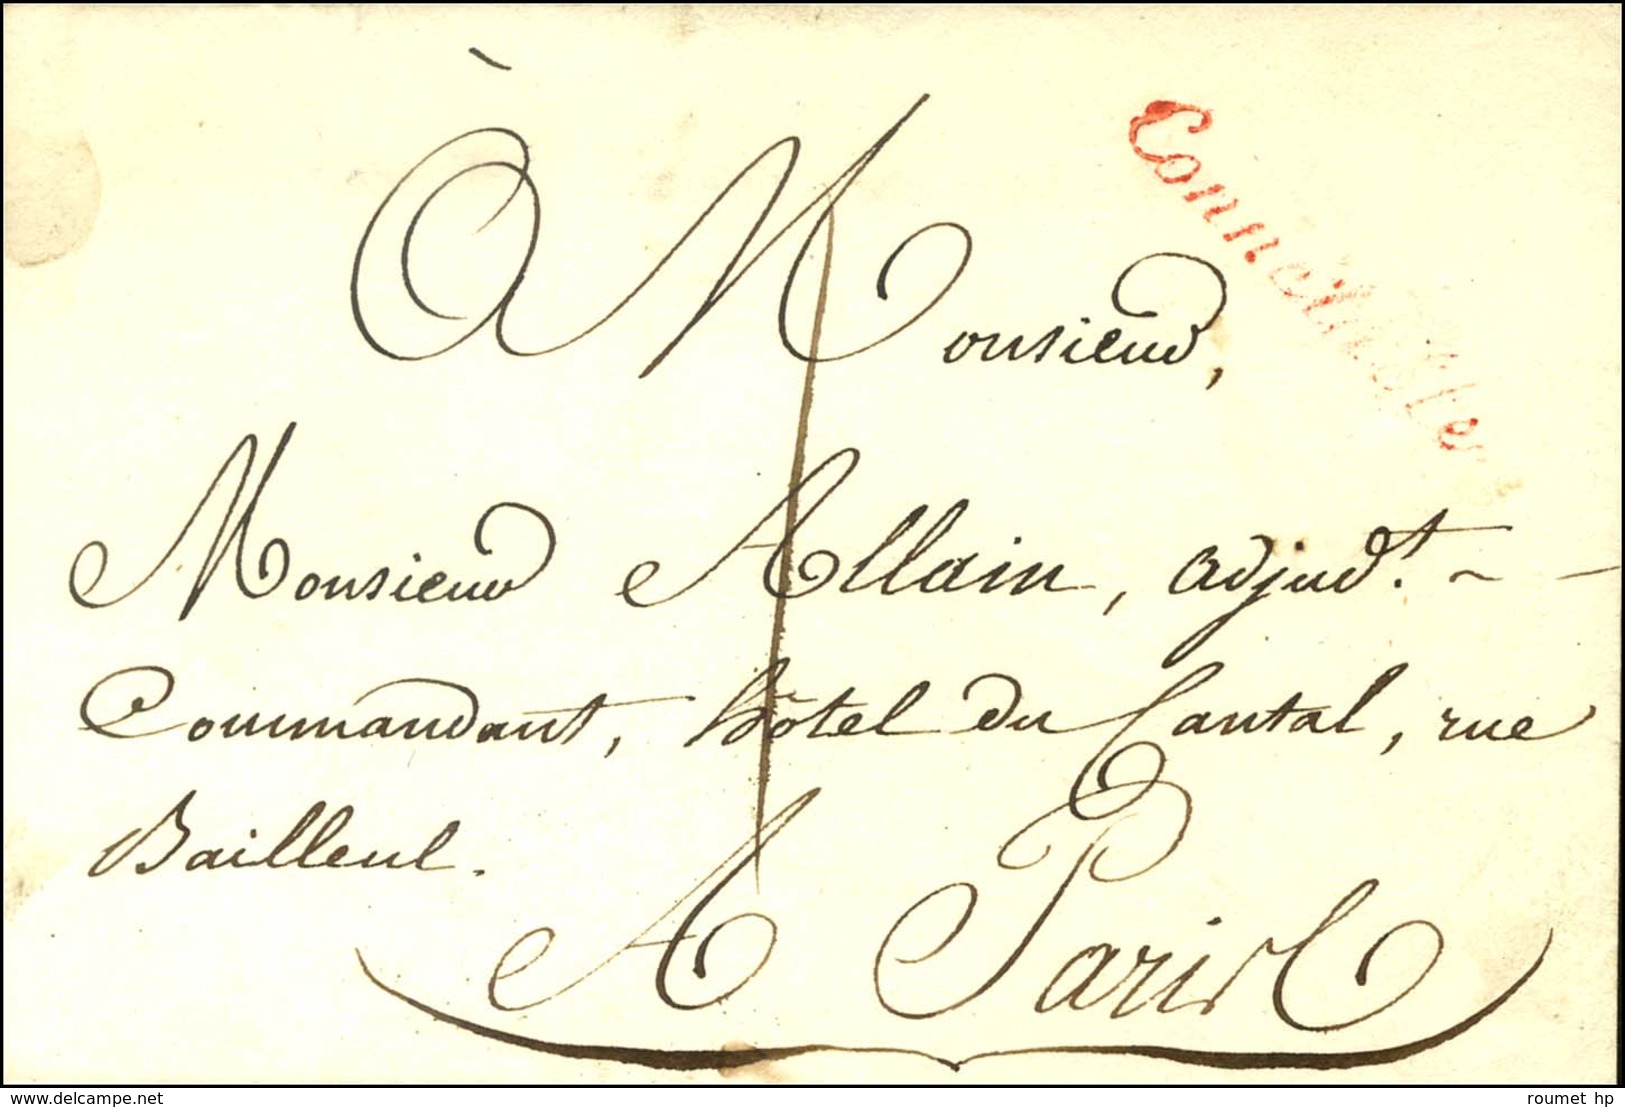 À Monsieur,
Monsieur Allain, adjudt.
Commandant, hôtel du Cantal, rue
Bailleul.
A Paris
www.delcampe.net
roumet hp